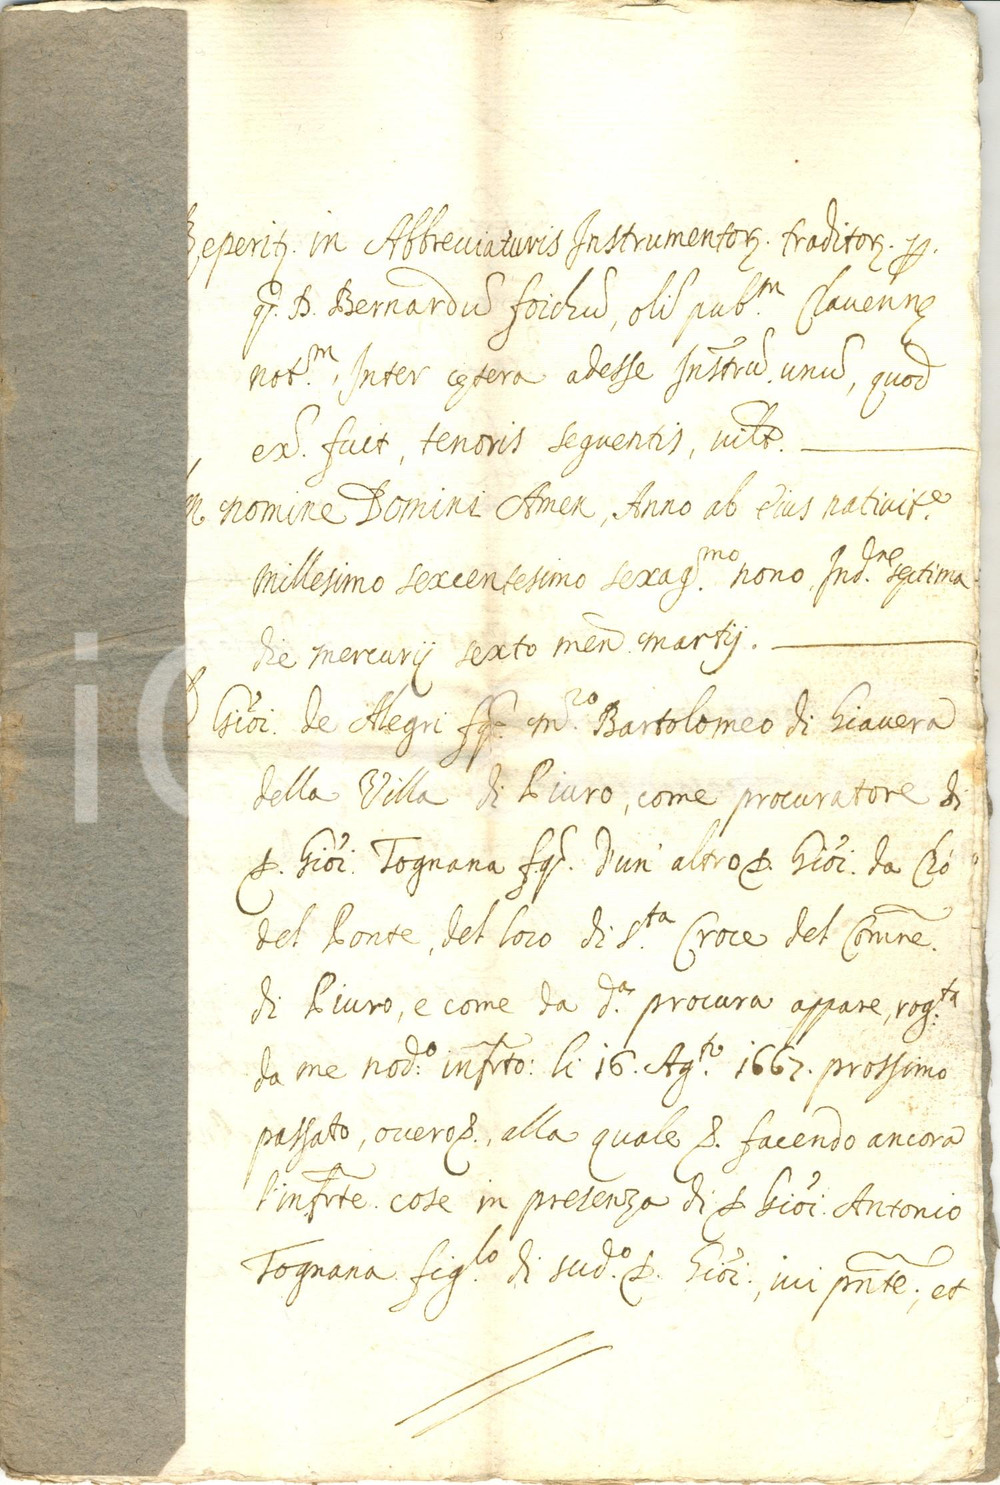 Reperitꝫ. in Abbreviaturis Instrumentorꝫ. traditorꝫ. pp.
q. D. Bernardū foichū, oli pub.m Clavennę
not.m, Inter cętera adesse Instrū. unū, quod
ex. fuit, tenoris sequentis, vilt.
In nomine Domini Amen, Anno ab eius nativit.e
millesimo sexcentesimo sexag.mo nono, Ind.ne septima
die mercurij sexto men. martij.
Gioi. de Alegri fq. m.ro Bartolomeo di Giavera
della Villa di Piuro, come procuratore di
S. Gioi. Tognana fq. d'un' altro S. Gioi. da Cò
del Ponte, del loco di S.ta Croce del Comne.
di Piuro, e come da d.a procura appare, rog.ta
da me nod.o infrto: li 16. Ag.to 1667. prossimo
passato, overo S., alla quale S. facendo ancora
l'infrte. cose in presenza di S. Gioi. Antonio
Tognana fig.lo di sud.o S. Gioi., ivi pnte., et
iC